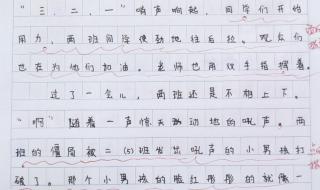 "三、二、一"哨声响起，同学们开始
用力，两班同学使劲地往后拉。观众们
也在为他们加油。老师也用双手指挥着。
过了一会儿，两班还是不相上下。
"啊"随着一声惊天动地的吼声。两
班的僵局被二（5）班发出吼声的小男孩打
破了。那个小男孩的脸红彤彤的就像一